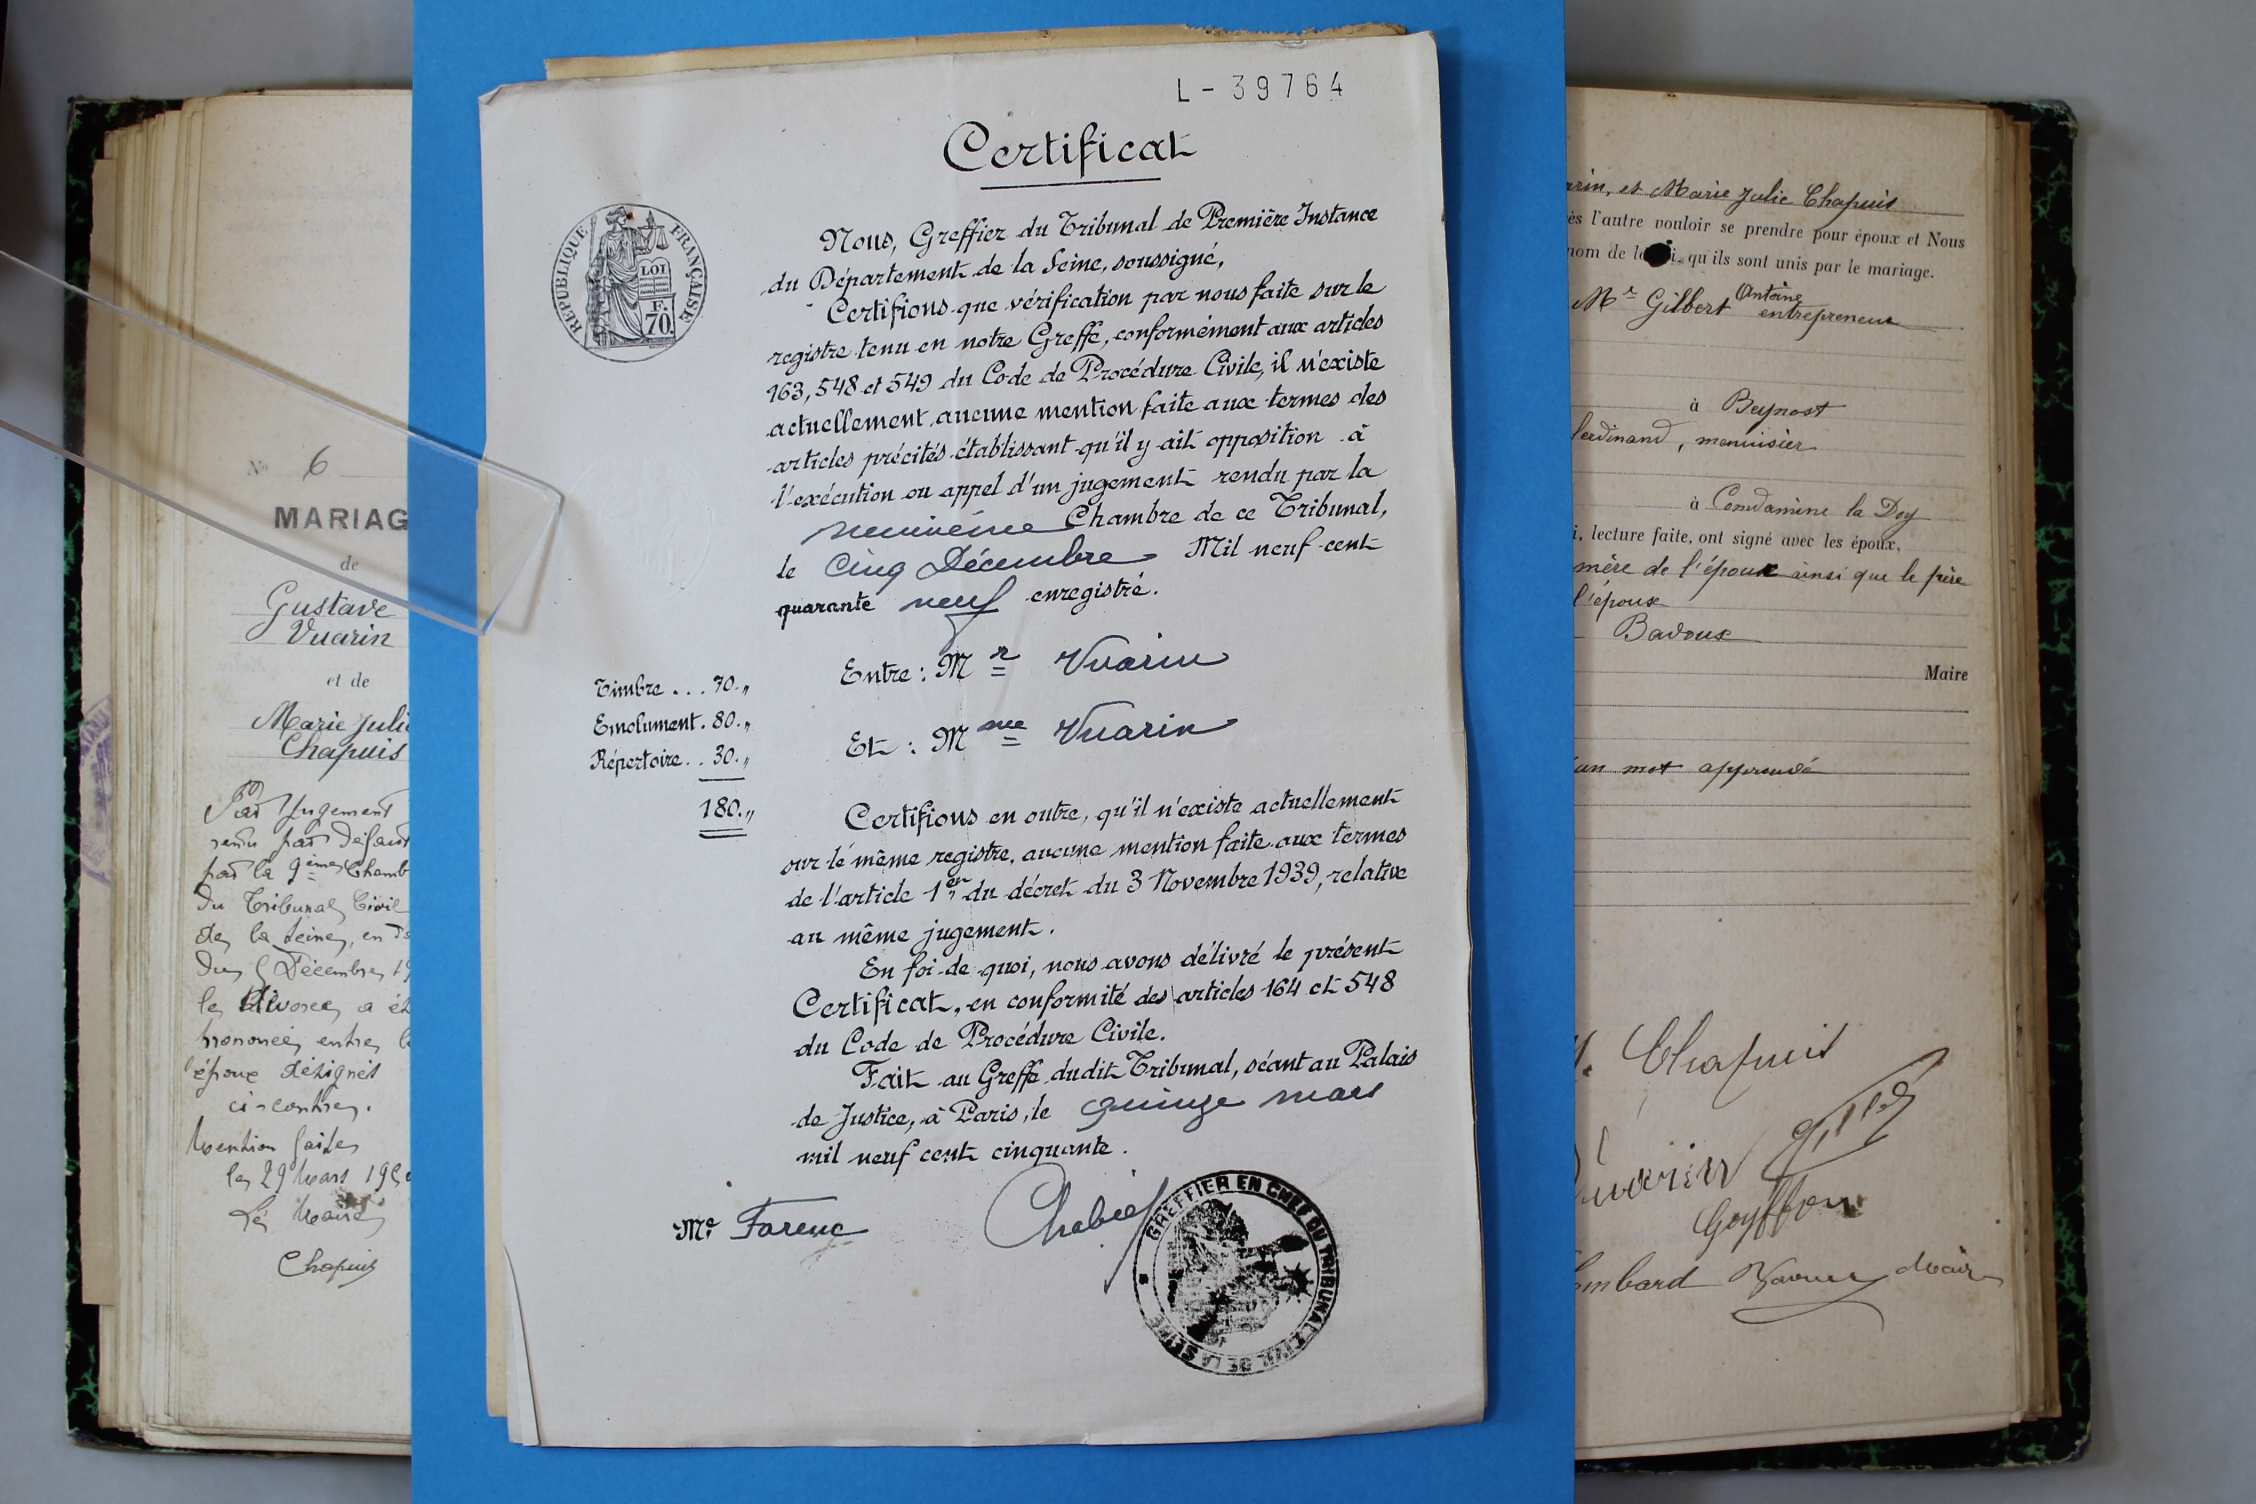 N° 6
MARIAG
de
Gustave
Vuarin
et de
Marie Julie
Chapuis
Par Jugement
rendu par défaut
par la 9ème Chamb
du Tribunal Civil
de la Seine, en d
du 5 Décembre 19
le divorce a ét
prononcé entre l
époux désignés
ci-contre.
Mention faite
le 29 Mars 195
Le Maire
Chapuis
L-39764
Certificat
REPUBLIQUE FRANÇAISE
LOI
F.
70.
Nous, Greffier du Tribunal de Première Instance
du Département de la Seine, soussigné,
Certifions que vérification par nous faite sur le
registre tenu en notre Greffe, conformément aux articles
163, 548 et 549 du Code de Procédure Civile, il n'existe
actuellement aucune mention faite aux termes des
articles précités établissant qu'il y ait opposition à
l'exécution ou appel d'un jugement rendu par la
neuvième Chambre de ce Tribunal,
le cinq Décembre Mil neuf cent
quarante neuf enregistré.
Entre : Mr Vuarin
Et : Mme Vuarin
Timbre . . . 70.,,
Emolument . 80.,,
Répertoire . . 30.,,
180.,,
Certifions en outre, qu'il n'existe actuellement
sur le même registre, aucune mention faite aux termes
de l'article 1er du décret du 3 Novembre 1939, relative
au même jugement.
En foi de quoi, nous avons délivré le présent
Certificat, en conformité des articles 164 et 548
du Code de Procédure Civile.
Fait au Greffe dudit Tribunal, séant au Palais
de Justice, à Paris, le quinze mars
mil neuf cent cinquante.
Me Farenc
GREFFIER EN CHEF DU TRIBUNAL CIVIL DE LA SEINE
arin, et Marie Julie Chapuis
ès l'autre vouloir se prendre pour époux et Nous
nom de la loi, qu'ils sont unis par le mariage.
Mr Gilbert Antoine
entrepreneur
à Beynost
ferdinand, menuisier
à Condamine la Doy
i, lecture faite, ont signé avec les époux,
mère de l'époux ainsi que le père
l'épouse
Badoux
Maire
un mot approuvé
M. Chapuis
Goyffon
ombard